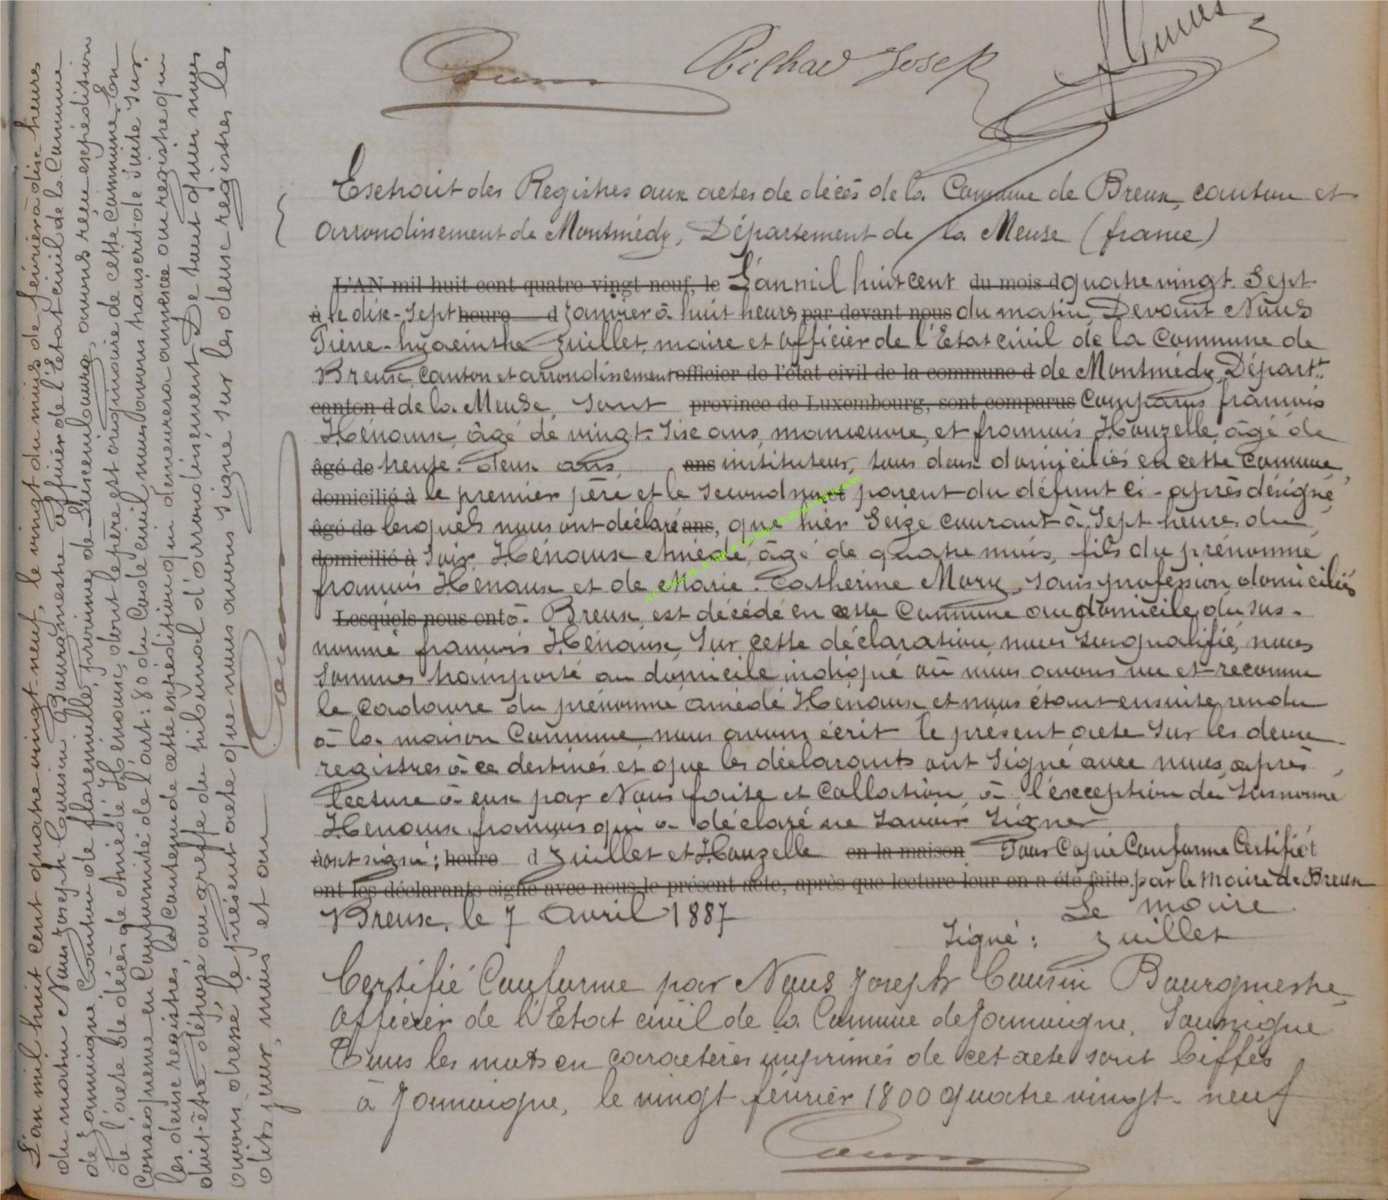 Cousin Richard Josep
Extrait des Registres aux actes de décès de la Commune de Breux, canton et
arrondissement de Montmédy, Département de la Meuse (france)
L'AN mil huit cent quatre vingt neuf, le L'an mil huit cent du mois d quatre vingt Sept
à le dix-Sept heure d Janvier à huit heurs par devant nous du matin, Devant Nous
Pierre-hyacinthe Juillet, maire et officier de l'Etat civil de la Commune de
Breux, canton et arrondissement officier de l'état civil de la commune d de Montmédy, Départt
canton d de la Meuse, sont province de Luxembourg, sont comparus Comparus françois
Hénoux, âgé de vingt-Six ans, manœuvre, et françois Hauzelle, âgé de
âgé de trente-deux ans, ans instituteur, tous deux domiciliés en cette Commune,
domicilié à le premier père et le second parent du défunt ci-après désigné,
âgé de lesquels nous ont déclaré ans, que hier Seize courant à Sept heures du
domicilié à Soir, Hénoux Amédé, âgé de quatre mois, fils du prénommé
françois Hénoux et de Marie-Catherine Mary, sans profession, domiciliés
Lesquels nous ont à Breux, est décédé en cette Commune au domicile du sus-
nommé françois Hénoux, Sur cette déclaration, nous susqualifié, nous
sommes transporté au domicile indiqué où nous avons vu et reconnu
le cadavre du prénommé amédé Hénoux, et nous étant ensuite rendu
à la maison Commune, nous avons écrit le présent acte sur les deux
registres à ce destinés et que les déclarants ont Signé avec nous, après
lecture à eux par Nous faite et Collation, à l'exception du Susnommé
Hénoux françois qui a déclaré ne savoir signer
ont signé; heure d Juillet et Hauzelle en la maison Pour Copie Conforme Certifiée
ont les déclarants signé avec nous le présent acte, après que lecture leur en a été faite. par le Maire de Breux
Breux, le 7 Avril 1887 Le Maire
Signé: Juillet
Certifié Conforme par Nous Joseph Cousin Bourgmestre
officier de l'Etat civil de la Commune de Jamoigne, Soussigné
Tous les mots en caractères imprimés de cet acte sont biffés
à Jamoigne, le vingt février 1800 quatre vingt-neuf
Cousin
L'an mil huit cent quatre vingt neuf, le vingt du mois de février à dix heures
du matin Nous Joseph Cousin Bourgmestre officier de l'Etat civil de la Commune
de Jamoigne Canton de florenville, province de Luxembourg, avons reçu expédition
de l'acte de décès de Amédé Hénoux, dont le père est originaire de cette Commune. En
conséquence en Conformité de l'art: 80 du Code civil, nous l'avons transcrit de Suite Sur
les deux registres, le Contenu de cette expédition qui demeurera annexée au registre qui
doit-être déposé au greffe du tribunal d'arrondissement. De tout quoi nous
avons dressé le présent acte que nous avons signé sur les deux registres les
dits jour, mois et an
Cousin